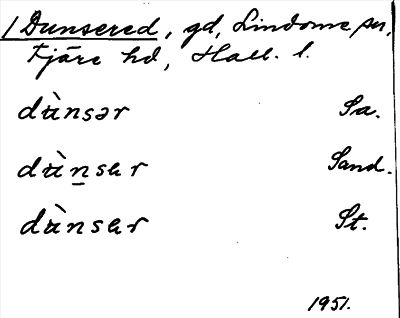 / Dunsered, gd, Lindome sn,
Fjäre hd, Hall. l.
dùnsər Sa.
dùnsər Sand.
dùnsər St.
1951.